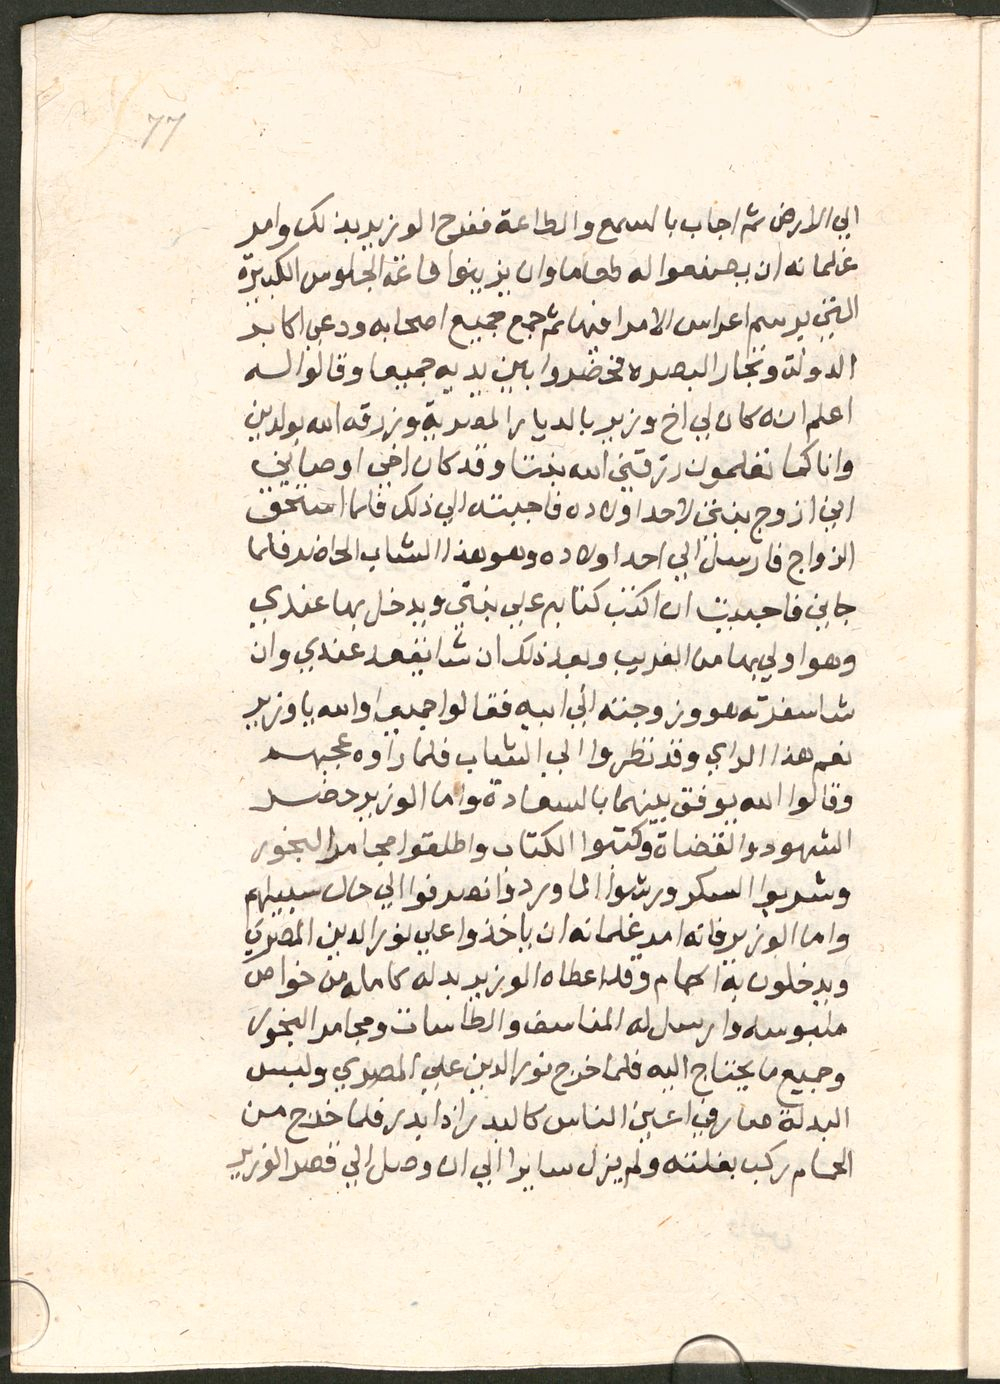 77
الي الارض ثم اجاب بالسمع والطاعة ففرح الوزير بذلك وامر
غلمانه ان يصنعوا له طعاما وان يزينوا قاعة الجلوس الكبيرة
التي برسم اعراس الامرا فيها ثم جمع جميع اصحابه ودعي اكابر
الدولة وتجار البصره فحضروا بين يديه جميعا وقال لهم
اعلم انه كان لي اخ وزير بالديار المصرية وزرقه الله بولدين
وانا كما تعلمون رزقني الله بنتا وقد كان اخي اوصاني
اني ازوج بنتي لاحد اولاده فاجبته الي ذلك فلما استحق
الزواج فارسل الي احد اولاده وهو هذا الشاب الحاضر فلما
جاني فاحببت ان اكتب كتابه علي بنتي ويدخل بها عندي
وهو اولي بها من الغريب وبعد ذلك ان شا يقعد عندي وان
شا سفرته هو وزوجته الي ابيه فقالوا جميعا والله يا وزير
نعم هذا الراي وقد نظروا الي الشاب فلما راوه عجبهم
وقالوا الله يوفق بينهما بالسعادة واما الوزير حضر
الشهود والقضاة وكتبوا الكتاب واطلقوا مجامر البخور
وشربوا السكر ورشوا الماورد وانصرفوا الي حال سبيلهم
واما الوزير فانه امر غلمانه ان ياخذوا علي نور الدين المصري
ويدخلون به الحمام وقد اعطاه الوزير بدله كامله من خواص
ملبوسه وارسل له المناسف والطاسات ومجامر البخور
وجميع ما يحتاج اليه فلما اخرج نور الدين علي المصري ولبس
البدلة صار في اعين الناس كالبدر اذا بدر فلما خرج من
الحمام ركب بغلته ولم يزل سايرا الي ان وصل الي قصر الوزير